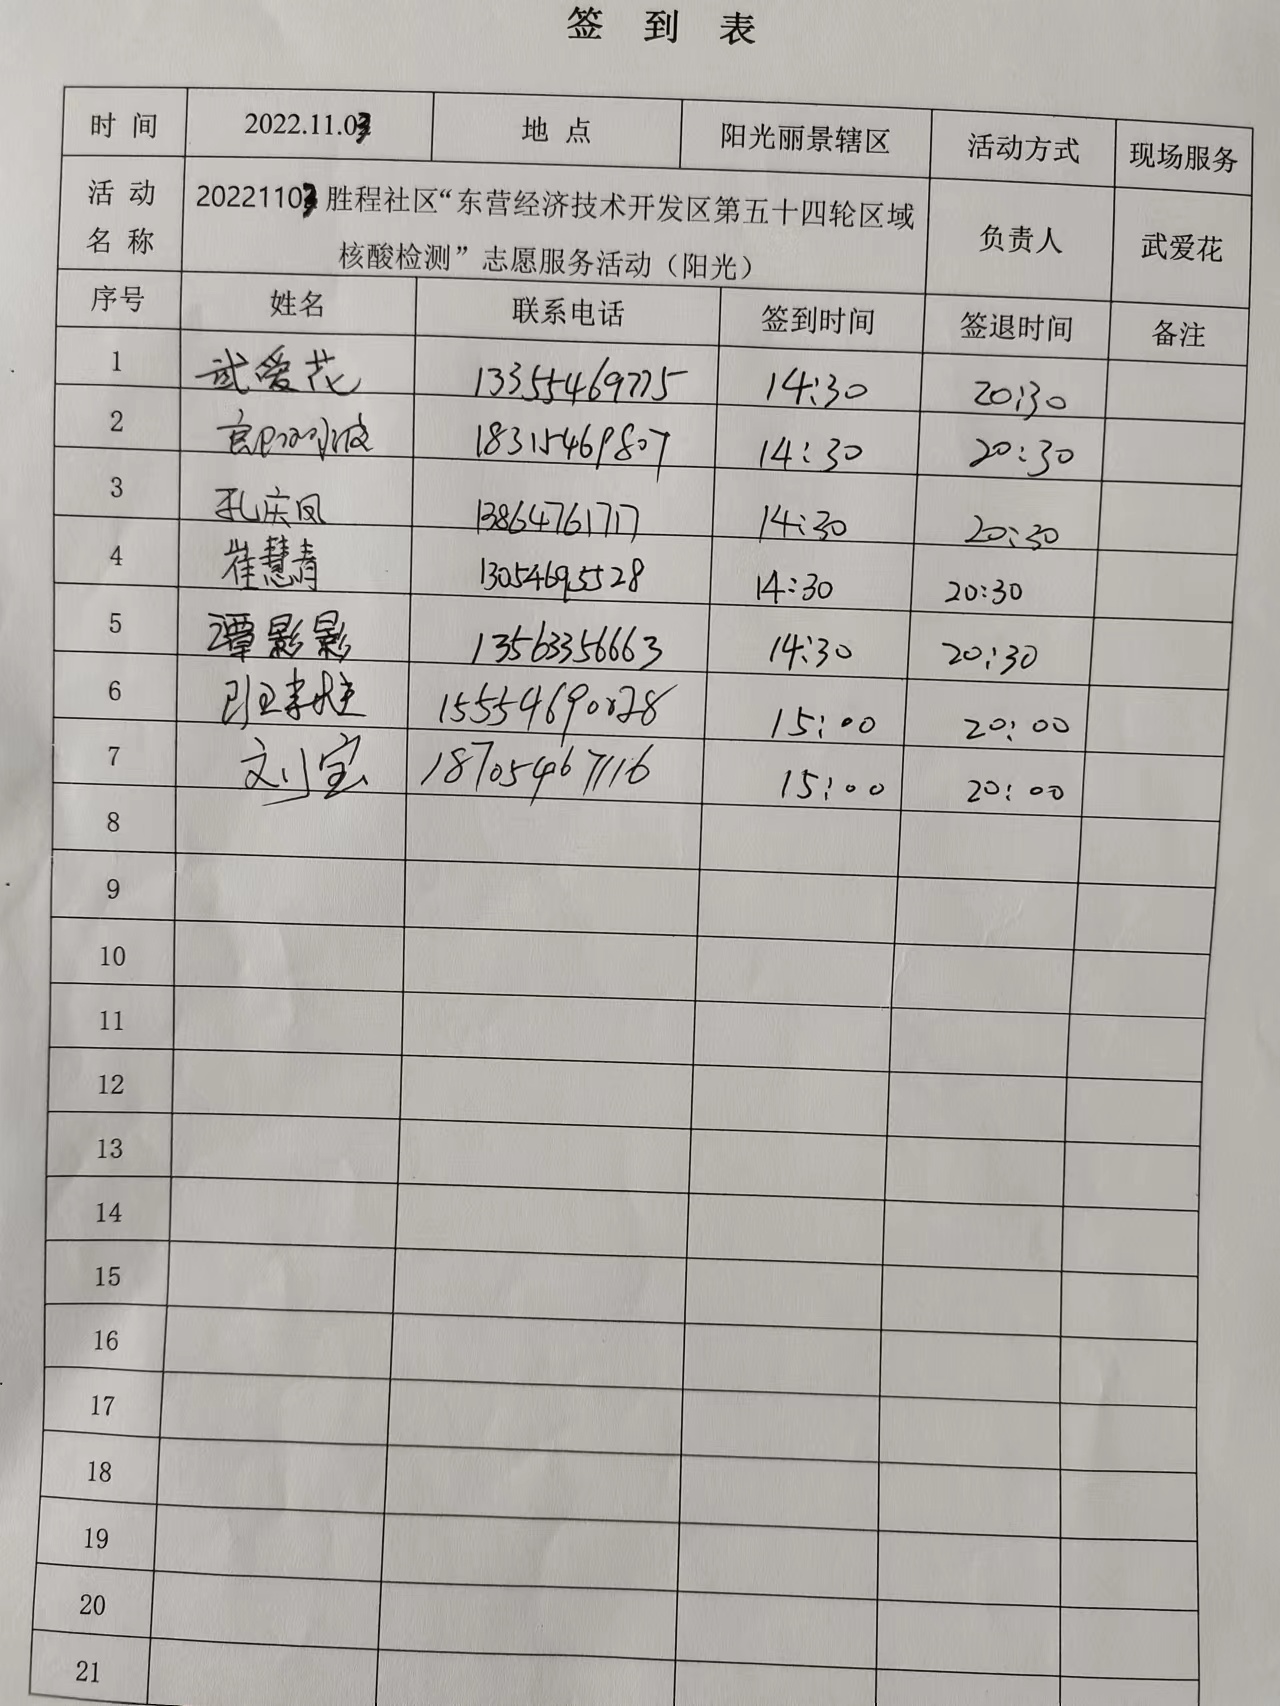 签 到 表
时 间 2022.11.03 地 点 阳光丽景辖区 活动方式 现场服务
活 动 名 称 20221103 胜程社区“东营经济技术开发区第五十四轮区域
核酸检测”志愿服务活动（阳光） 负责人 武爱花
序号 姓名 联系电话 签到时间 签退时间 备注
1 武爱花 13355469775 14:30 20:30
2 18315469807 14:30 20:30
3 孔庆凤 13864761717 14:30 20:30
4 崔慧青 13054695528 14:30 20:30
5 谭影影 13563356663 14:30 20:30
6 15:00 20:00
7 刘宝 18705467116 15:00 20:00
8
9
10
11
12
13
14
15
16
17
18
19
20
21